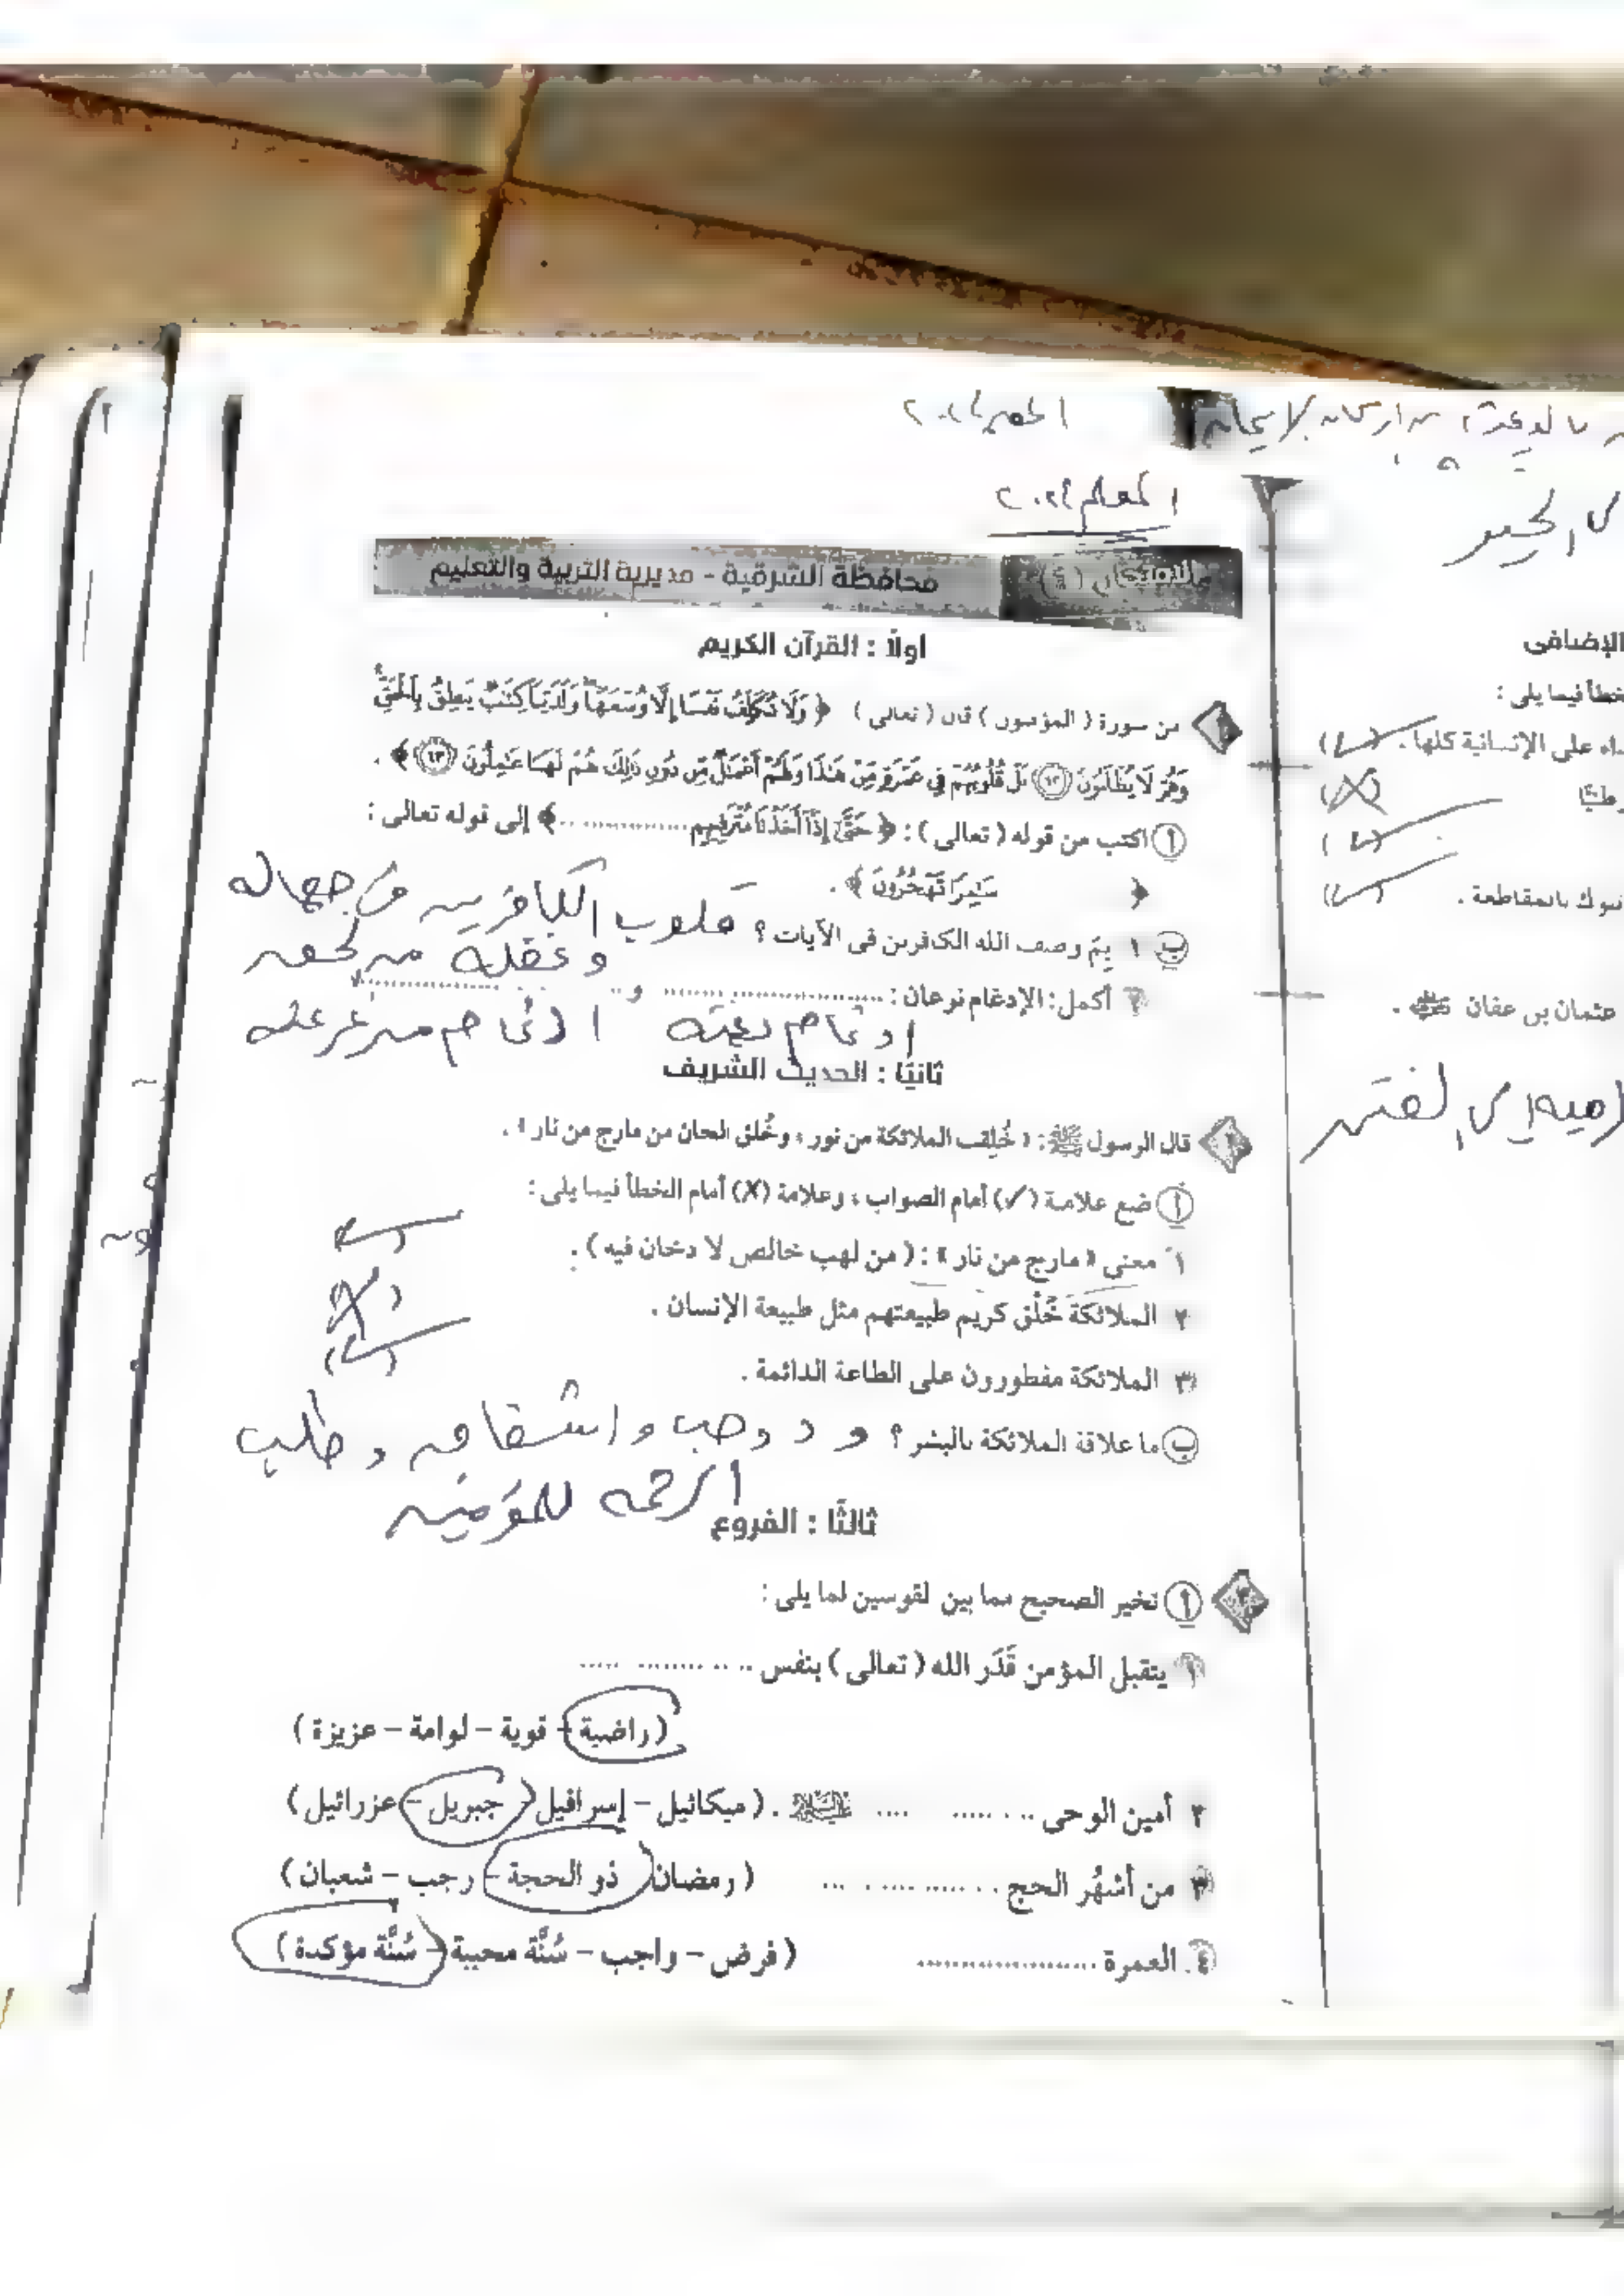 المعلم ٢٠٢
محافظة الشرقية - مديرية التربية والتعليم
أولًا : القرآن الكريم
من سورة ( المؤمنون ) قال ( تعالى ) ﴿ وَلَا نُكَلِّفُ نَفْسًا إِلَّا وُسْعَهَا وَلَدَيْنَا كِتَٰبٌ يَنطِقُ بِالْحَقِّ
وَهُمْ لَا يُظْلَمُونَ ﴿٦٢﴾ بَلْ قُلُوبُهُمْ فِي غَمْرَةٍ مِّنْ هَٰذَا وَلَهُمْ أَعْمَٰلٌ مِّن دُونِ ذَٰلِكَ هُمْ لَهَا عَٰمِلُونَ ﴿٦٣﴾ ﴾ .
أ اكتب من قوله ( تعالى ) : ﴿ حَتَّىٰ إِذَا أَخَذْنَا مُتْرَفِيهِم ............ ﴾ إلى قوله تعالى :
﴿ سَٰمِرًا تَهْجُرُونَ ﴾ .
ب ١ بِمَ وصف الله الكافرين فى الآيات ؟ قلوب الكافرين فى جهاله
و غفله من
٢ أكمل : الإدغام نوعان : .................... و ....................
ادغام بغنه ادغام من غير غنه
ثانيًا : الحديث الشريف
٢ قال الرسول ﷺ : « خُلِقت الملائكة من نور ، وخُلق الجان من مارج من نار » .
أ ضع علامة (✓) أمام الصواب ، وعلامة (X) أمام الخطأ فيما يلى :
١ معنى « مارج من نار » : ( من لهب خالص لا دخان فيه ) . (✓)
٢ الملائكة خَلْق كريم طبيعتهم مثل طبيعة الإنسان . (X)
٣ الملائكة مفطورون على الطاعة الدائمة . (✓)
ب ما علاقة الملائكة بالبشر ؟ ود وحب و وطلب
الرحمه للمؤمنين
ثالثًا : الفروع
٣ أ تخير الصحيح مما بين القوسين لما يلى :
١ يتقبل المؤمن قَدَر الله ( تعالى ) بنفس ....................
( راضية - قوية - لوامة - عزيزة )
٢ أمين الوحى .................... . ( ميكائيل - إسرافيل - جبريل - عزرائيل )
٣ من أشهُر الحج .................... ( رمضان - ذو الحجة - رجب - شعبان )
٤ العمرة .................... ( فرض - واجب - سُنَّة محببة - سُنَّة مؤكدة )
الإضافى
خطأ فيما يلى :
على الإنسانية كلها . (✓)
(X)
(✓)
بالمقاطعة . (✓)
عثمان بن عفان .